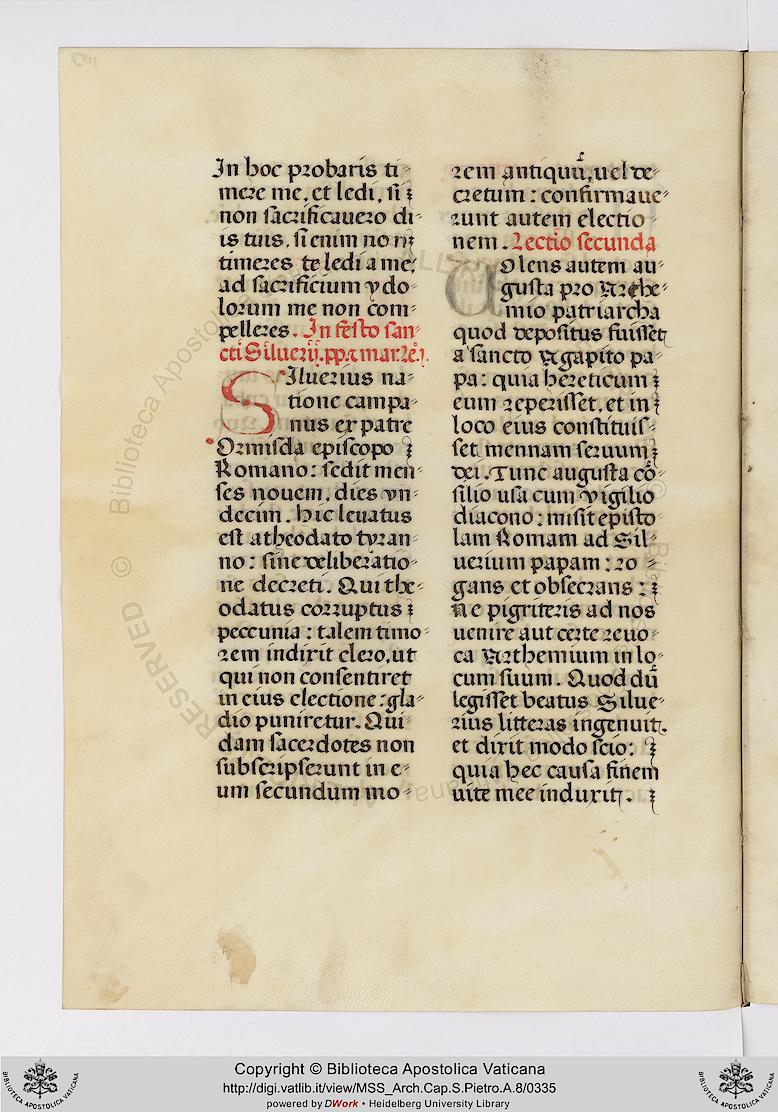 In hoc probaris ti-
mere me, et ledi, si
non sacrificauero di-
is tuis. si enim non
timeres te ledi a me,
ad sacrificium & do-
lorum me non com-
pelleres. In festo san-
cti Siluerij. pp. & mar. le. j.
Siluerius na-
tione campa-
nus ex patre
Ormisda episcopo
Romano: sedit men-
ses nouem, dies vn-
decim. hic leuatus
est a theodato tyran-
no: sine deliberatio-
ne decreti. Qui the-
odatus corruptus
peccunia: talem timo-
rem indixit clero, ut
qui non consentiret
in eius electione: gla-
dio puniretur. Qui-
dam sacerdotes non
subscripserunt in e-
um secundum mo-
rem antiquũ, uel de-
cretum: confirmaue-
runt autem electio-
nem. Lectio secunda
Uolens autem au-
gusta pro Arthe-
mio patriarcha
quod depositus fuisset
a sancto Agapito pa-
pa: quia hereticum
eum reperisset, et in
loco eius constituis-
set mennam seruum
dei. Tunc augusta cõ-
silio usa cum Vigilio
diacono: misit episto-
lam Romam ad Sil-
uerium papam: ro-
gans et obsecrans:
Ne pigriteris ad nos
uenire aut certe reuo-
ca Arthemium in lo-
cum suum. Quod dũ
legisset beatus Silue-
rius litteras ingenuit.
et dixit modo scio:
quia hec causa finem
uite mee induxit.
Copyright © Biblioteca Apostolica Vaticana
http://digi.vatlib.it/view/MSS_Arch.Cap.S.Pietro.A.8/0335
powered by DWork • Heidelberg University Library